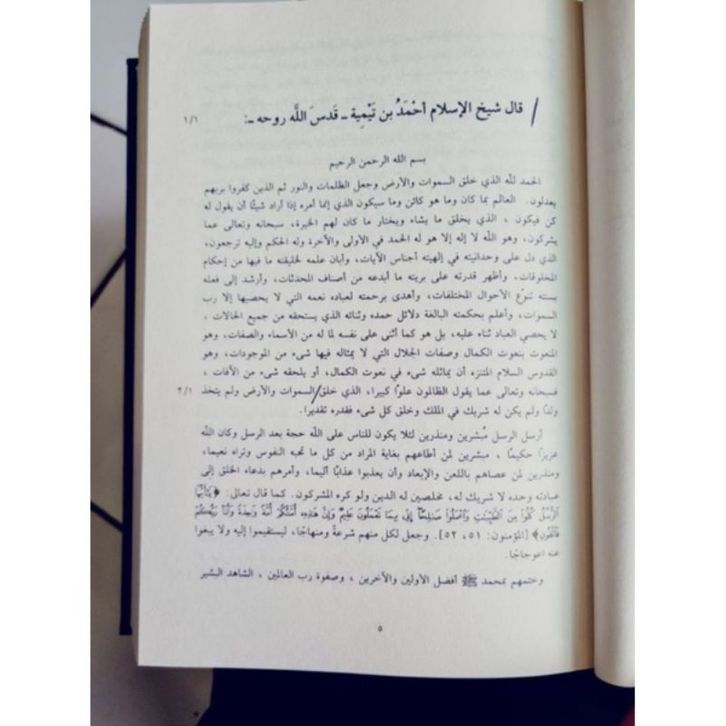 / قال شيخ الإسلام أحْمَدُ بن تَيْمِية ـ قَدسَ اللَّه روحه ـ: ١/١
بسم الله الرحمن الرحيم
الحمد لله الذي خلق السموات والأرض وجعل الظلمات والنور ثم الذين كفروا بربهم
يعدلون. العالم بما كان وما هو كائن وما سيكون الذي إنما أمره إذا أراد شيئًا أن يقول له
كن فيكون ، الذي يخلق ما يشاء ويختار ما كان لهم الخيرة، سبحانه وتعالى عما
يشركون، وهو الله لا إله إلا هو له الحمد في الأولى والآخرة وله الحكم وإليه ترجعون،
الذي دل على وحدانيته في إلهيته أجناس الآيات، وأبان علمه لخليقته ما فيها من إحكام
المخلوقات، وأظهر قدرته على بريته ما أبدعه من أصناف المحدثات، وأرشد إلى فعله
بسنته تنوّع الأحوال المختلفات، وأهدى برحمته لعباده نعمه التي لا يحصيها إلا رب
السموات، وأعلم بحكمته البالغة دلائل حمده وثنائه الذي يستحقه من جميع الحالات ،
لا يحصي العباد ثناء عليه، بل هو كما أثنى على نفسه لما له من الأسماء والصفات، وهو
المنعوت بنعوت الكمال وصفات الجلال التي لا يماثله فيها شىء من الموجودات، وهو
القدوس السلام المتنزه أن يماثله شىء في نعوت الكمال، أو يلحقه شىء من الآفات ،
فسبحانه وتعالى عما يقول الظالمون علوًا كبيرا، الذي خلق/السموات والأرض ولم يتخذ ٢/١
ولدًا ولم يكن له شريك في الملك وخلق كل شىء فقدره تقديرا.
أرسل الرسل مُبشرين ومنذرين لئلا يكون للناس على الله حجة بعد الرسل وكان الله
عزيزًا حكيمًا ، مبشرين لمن أطاعهم بغاية المراد من كل ما تحبه النفوس وتراه نعيما،
ومنذرين لمن عصاهم باللعن والإبعاد وأن يعذبوا عذابًا أليما، وأمرهم بدعاء الخلق إلى
عبادته وحده لا شريك له، مخلصين له الدين ولو كره المشركون. كما قال تعالى: ﴿يَٰٓأَيُّهَا
ٱلرُّسُلُ كُلُوا۟ مِنَ ٱلطَّيِّبَٰتِ وَٱعْمَلُوا۟ صَٰلِحًا إِنِّى بِمَا تَعْمَلُونَ عَلِيمٌ وَإِنَّ هَٰذِهِۦٓ أُمَّتُكُمْ أُمَّةً وَٰحِدَةً وَأَنَا۠ رَبُّكُمْ
فَٱتَّقُونِ﴾ [المؤمنون: ٥١، ٥٢]. وجعل لكل منهم شرعةً ومنهاجًا، ليستقيموا إليه ولا يبغوا
عنه اعوجاجًا.
وختمهم بمحمد ﷺ أفضل الأولين والآخرين ، وصفوة رب العالمين ، الشاهد البشير
٥